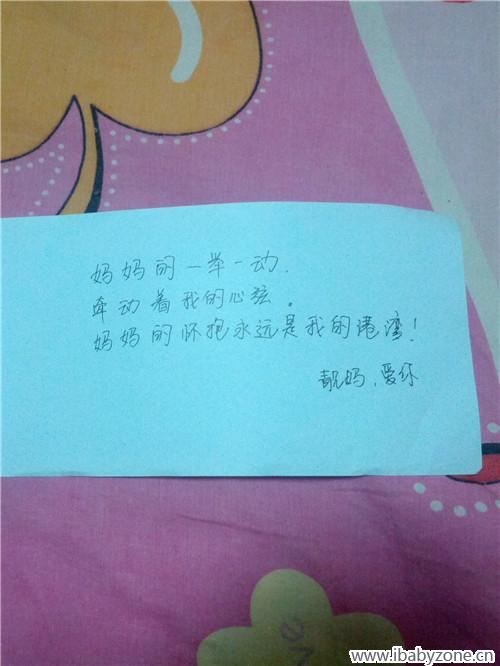 妈妈的一举一动.
牵动着我的心弦。
妈妈的怀抱永远是我的港湾！
靓妈、爱你
www.ibabyzone.cn